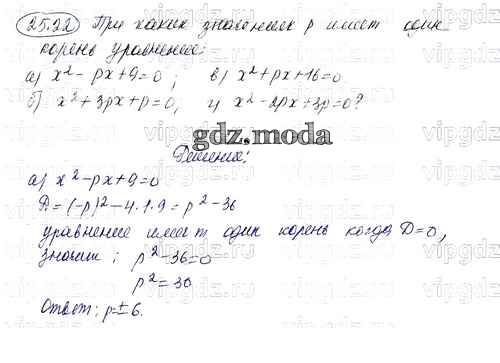 25.22 При каких значениях p имеет один
корень уравнение:
а) x² - px + 9 = 0; в) x² + px + 16 = 0
б) x² + 3px + p = 0, г) x² - 2px + 3p = 0?
gdz.moda
Решение:
а) x² - px + 9 = 0
D = (-p)² - 4·1·9 = p² - 36
уравнение имеет один корень когда D = 0,
значит: p² - 36 = 0
p² = 30
Ответ: p = ± 6.
vipgdz.ru